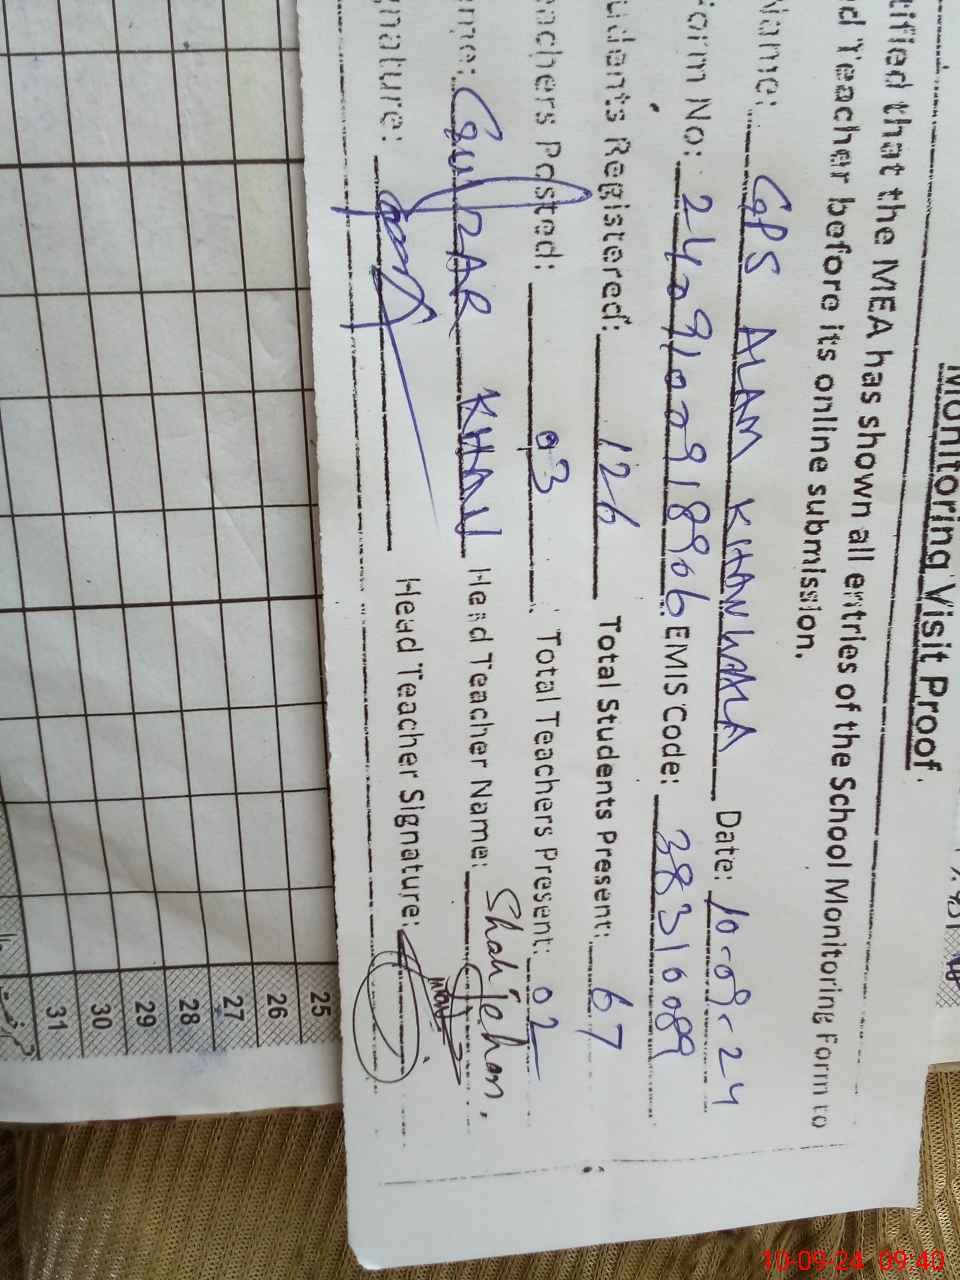 Monitoring Visit Proof.
tified that the MEA has shown all entries of the School Monitoring Form to
d Teacher before its online submission.
Name: GPS ALAM KHAN WALA Date: 10-09-24
Form No: 2409100918906 EMIS Code: 38310089
udents Registered: 126 Total Students Present: 67
eachers Posted: 03 Total Teachers Present: 02
me: GulZAR KHAN Head Teacher Name: Shah Jehan.
gnature: Head Teacher Signature:
25
26
27
28
29
30
31
10-09-24 09:40